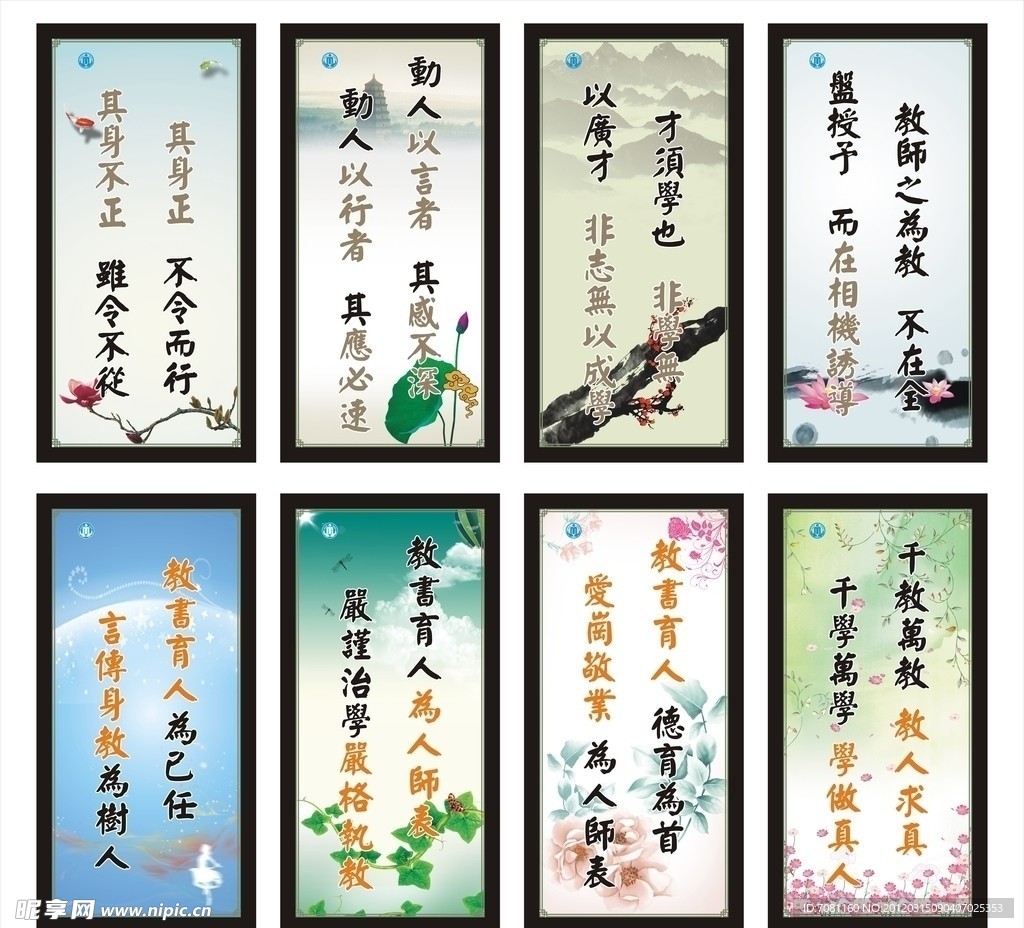 其身正 不令而行
其身不正 雖令不從
動人以言者 其感不深
動人以行者 其應必速
才須學也 非學無
以廣才 非志無以成學
教師之為教 不在全
盤授予 而在相機誘導
教書育人為已任
言傳身教為樹人
教書育人為人師表
嚴謹治學嚴格執教
教書育人 德育為首
愛崗敬業 為人師表
千教萬教 教人求真
千學萬學 學做真人
昵享网 www.nipic.cn
ID:7081160 NO:20120315090407025353